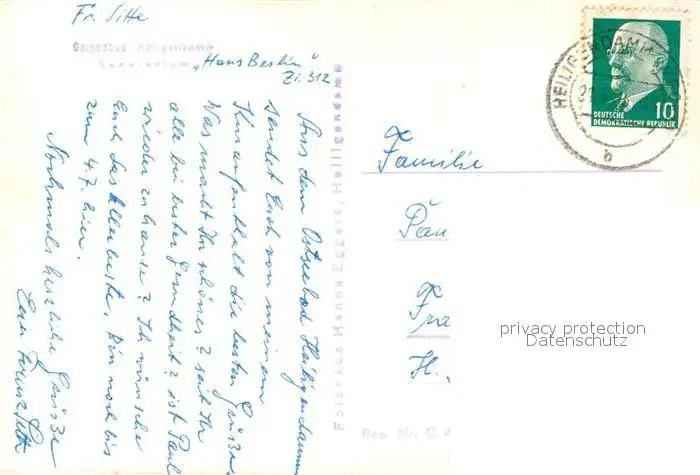 Fr. Sitte
Ostseebad Heiligendamm
Sanatorium „Haus Berlin"
Zi. 312
Aus dem Ostseebad Heiligendamm
sendet Euch von meinem
Kuraufenthalt die besten Grüße.
Was macht Ihr schönes? seid Ihr
alle bei bester Gesundheit? ist Paul
wieder zu hause? Ich wünsche
Euch das Allerbeste. Bin noch bis
zum 4.7. hier.
Nochmals herzliche Grüße
Euer Sitte
Fotohaus Hanna Eggers, Heiligendamm
HEILIGENDAMM
b
DEUTSCHE
DEMOKRATISCHE REPUBLIK
10
Familie
Pau
Fra
H.
Reg. Nr. C 4
privacy protection
Datenschutz